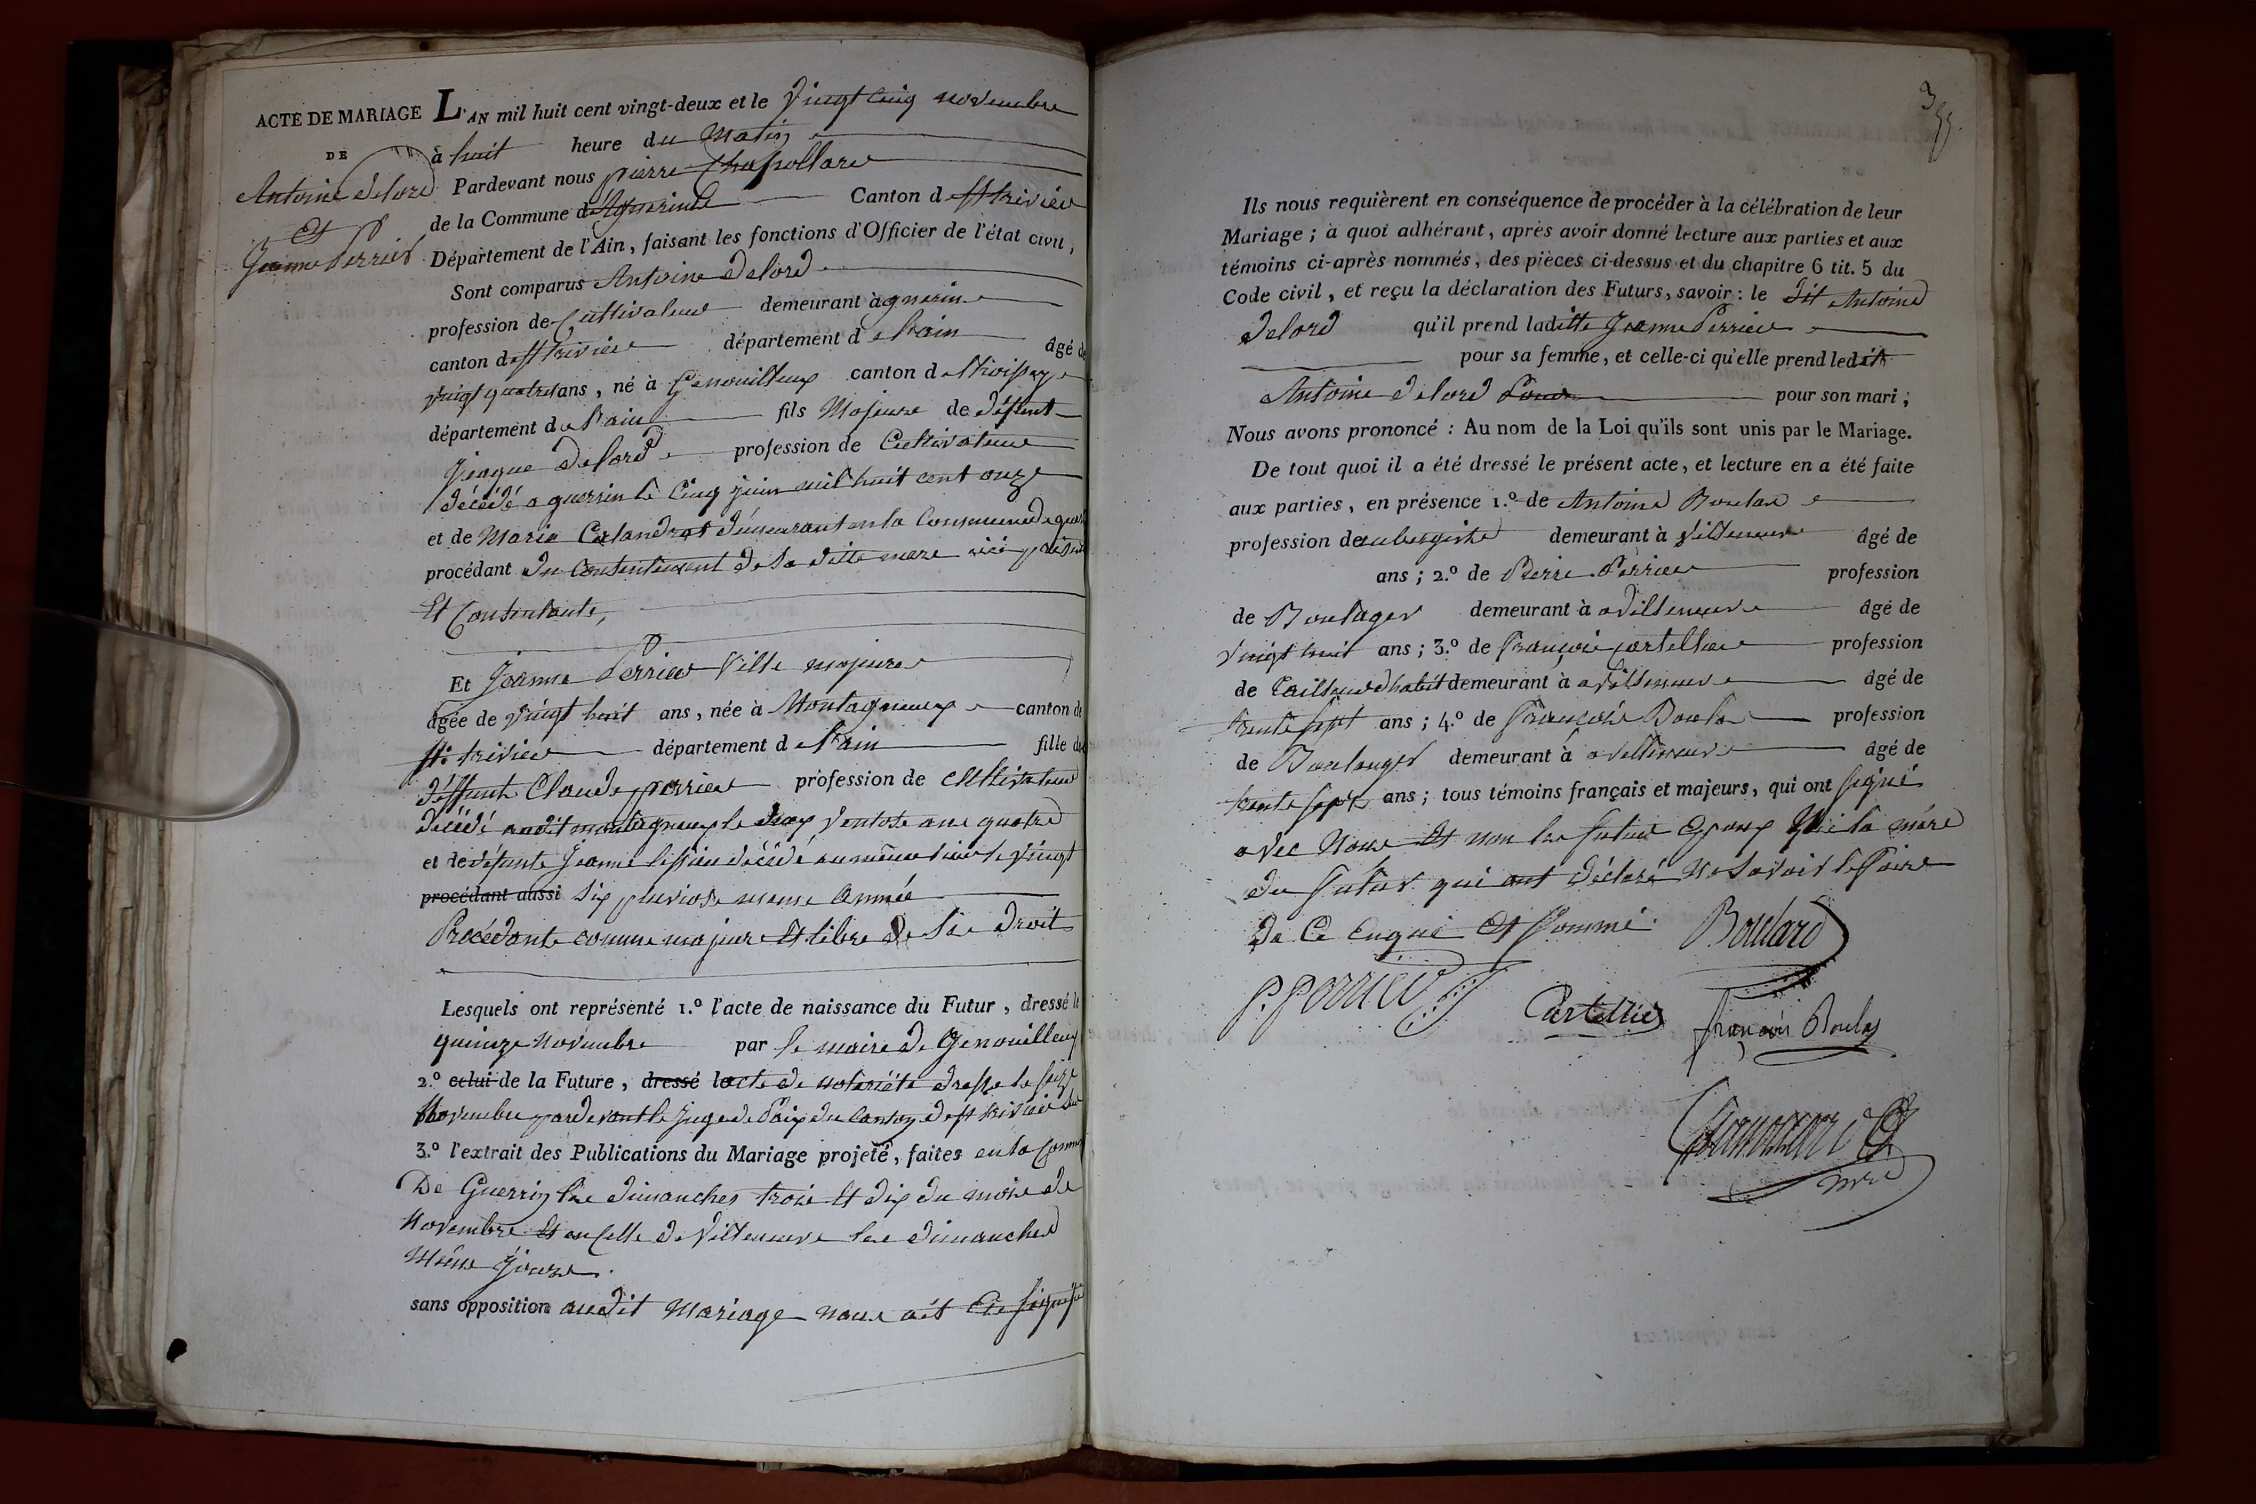 ACTE DE MARIAGE
DE
Antoine Delord
Et
Jeanne Perrier
L'AN mil huit cent vingt-deux et le vingt cinq novembre
à huit heure du Matin
Pardevant nous pierre
de la Commune Canton de st trivier
Département de l'Ain, faisant les fonctions d'Officier de l'état civil,
Sont comparus Antoine Delord
profession de Cultivateur demeurant à guerin
canton de st trivier département de l'ain âgé de
vingt quatre ans, né à Genouilleux canton de thoissey
département de l'ain fils Majeure de défunt
Jeaque Delord profession de Cultivateur
décédé a guerrin le Cinq juin mil huit cent onze
et de Marie Calandras demeurant en la Commune de
procédant du Consentement de sa ditte mere ici
Et Consentante,
Et Jeanne Perrier fille majeure
âgée de vingt huit ans, née à Montagneux canton de
st trivier département de l'ain fille de
deffunt Claude perrier profession de Cultivateur
décédé audit montagneux le ventose ane quatre
et de défunte Jeanne décédé au même lieu le vingt
procédant aussi six pluviose meme année
Procédante comme majeure Et libre de Se droit
Lesquels ont représenté 1.º l'acte de naissance du Futur, dressé le
quinze Novembre par le maire de Genouilleux
2.º celui de la Future, dressé lacte de notoriété dresse le seize
Novembre pardevant le juge de Paix du Canton de st trivier
3.º l'extrait des Publications du Mariage projeté, faites en la
De Guerrin les dimanches trois Et dix du mois de
Novembre Et en celle de Villeneuve les dimanches
Même Jours.
sans opposition audit Mariage nous ait
Ils nous requièrent en conséquence de procéder à la célébration de leur
Mariage; à quoi adhérant, après avoir donné lecture aux parties et aux
témoins ci-après nommés, des pièces ci-dessus et du chapitre 6 tit. 5 du
Code civil, et reçu la déclaration des Futurs, savoir: le dit Antoine
Delord qu'il prend laditte Jeanne Perrier
pour sa femme, et celle-ci qu'elle prend ledit
Antoine Delord pour son mari;
Nous avons prononcé: Au nom de la Loi qu'ils sont unis par le Mariage.
De tout quoi il a été dressé le présent acte, et lecture en a été faite
aux parties, en présence 1.º de Antoine Boulard
profession de aubergiste demeurant à villeneuve âgé de
ans; 2.º de Pierre Perrier profession
de Boulager demeurant à a villeneuve âgé de
vingt huit ans; 3.º de François Cartellier profession
de tailleur d'habit demeurant à a villeneuve âgé de
trente sept ans; 4.º de François Boulas profession
de Boulanger demeurant à a villeneuve âgé de
trente sept ans; tous témoins français et majeurs, qui ont signé
avec Nous Et non les futurs Epoux Ni la mère
du futur qui ont déclaré Ne savoir le faire
de Ce Enquis Et sommé.
Boulard
P. Perrier
Cartellier
françois Boulas